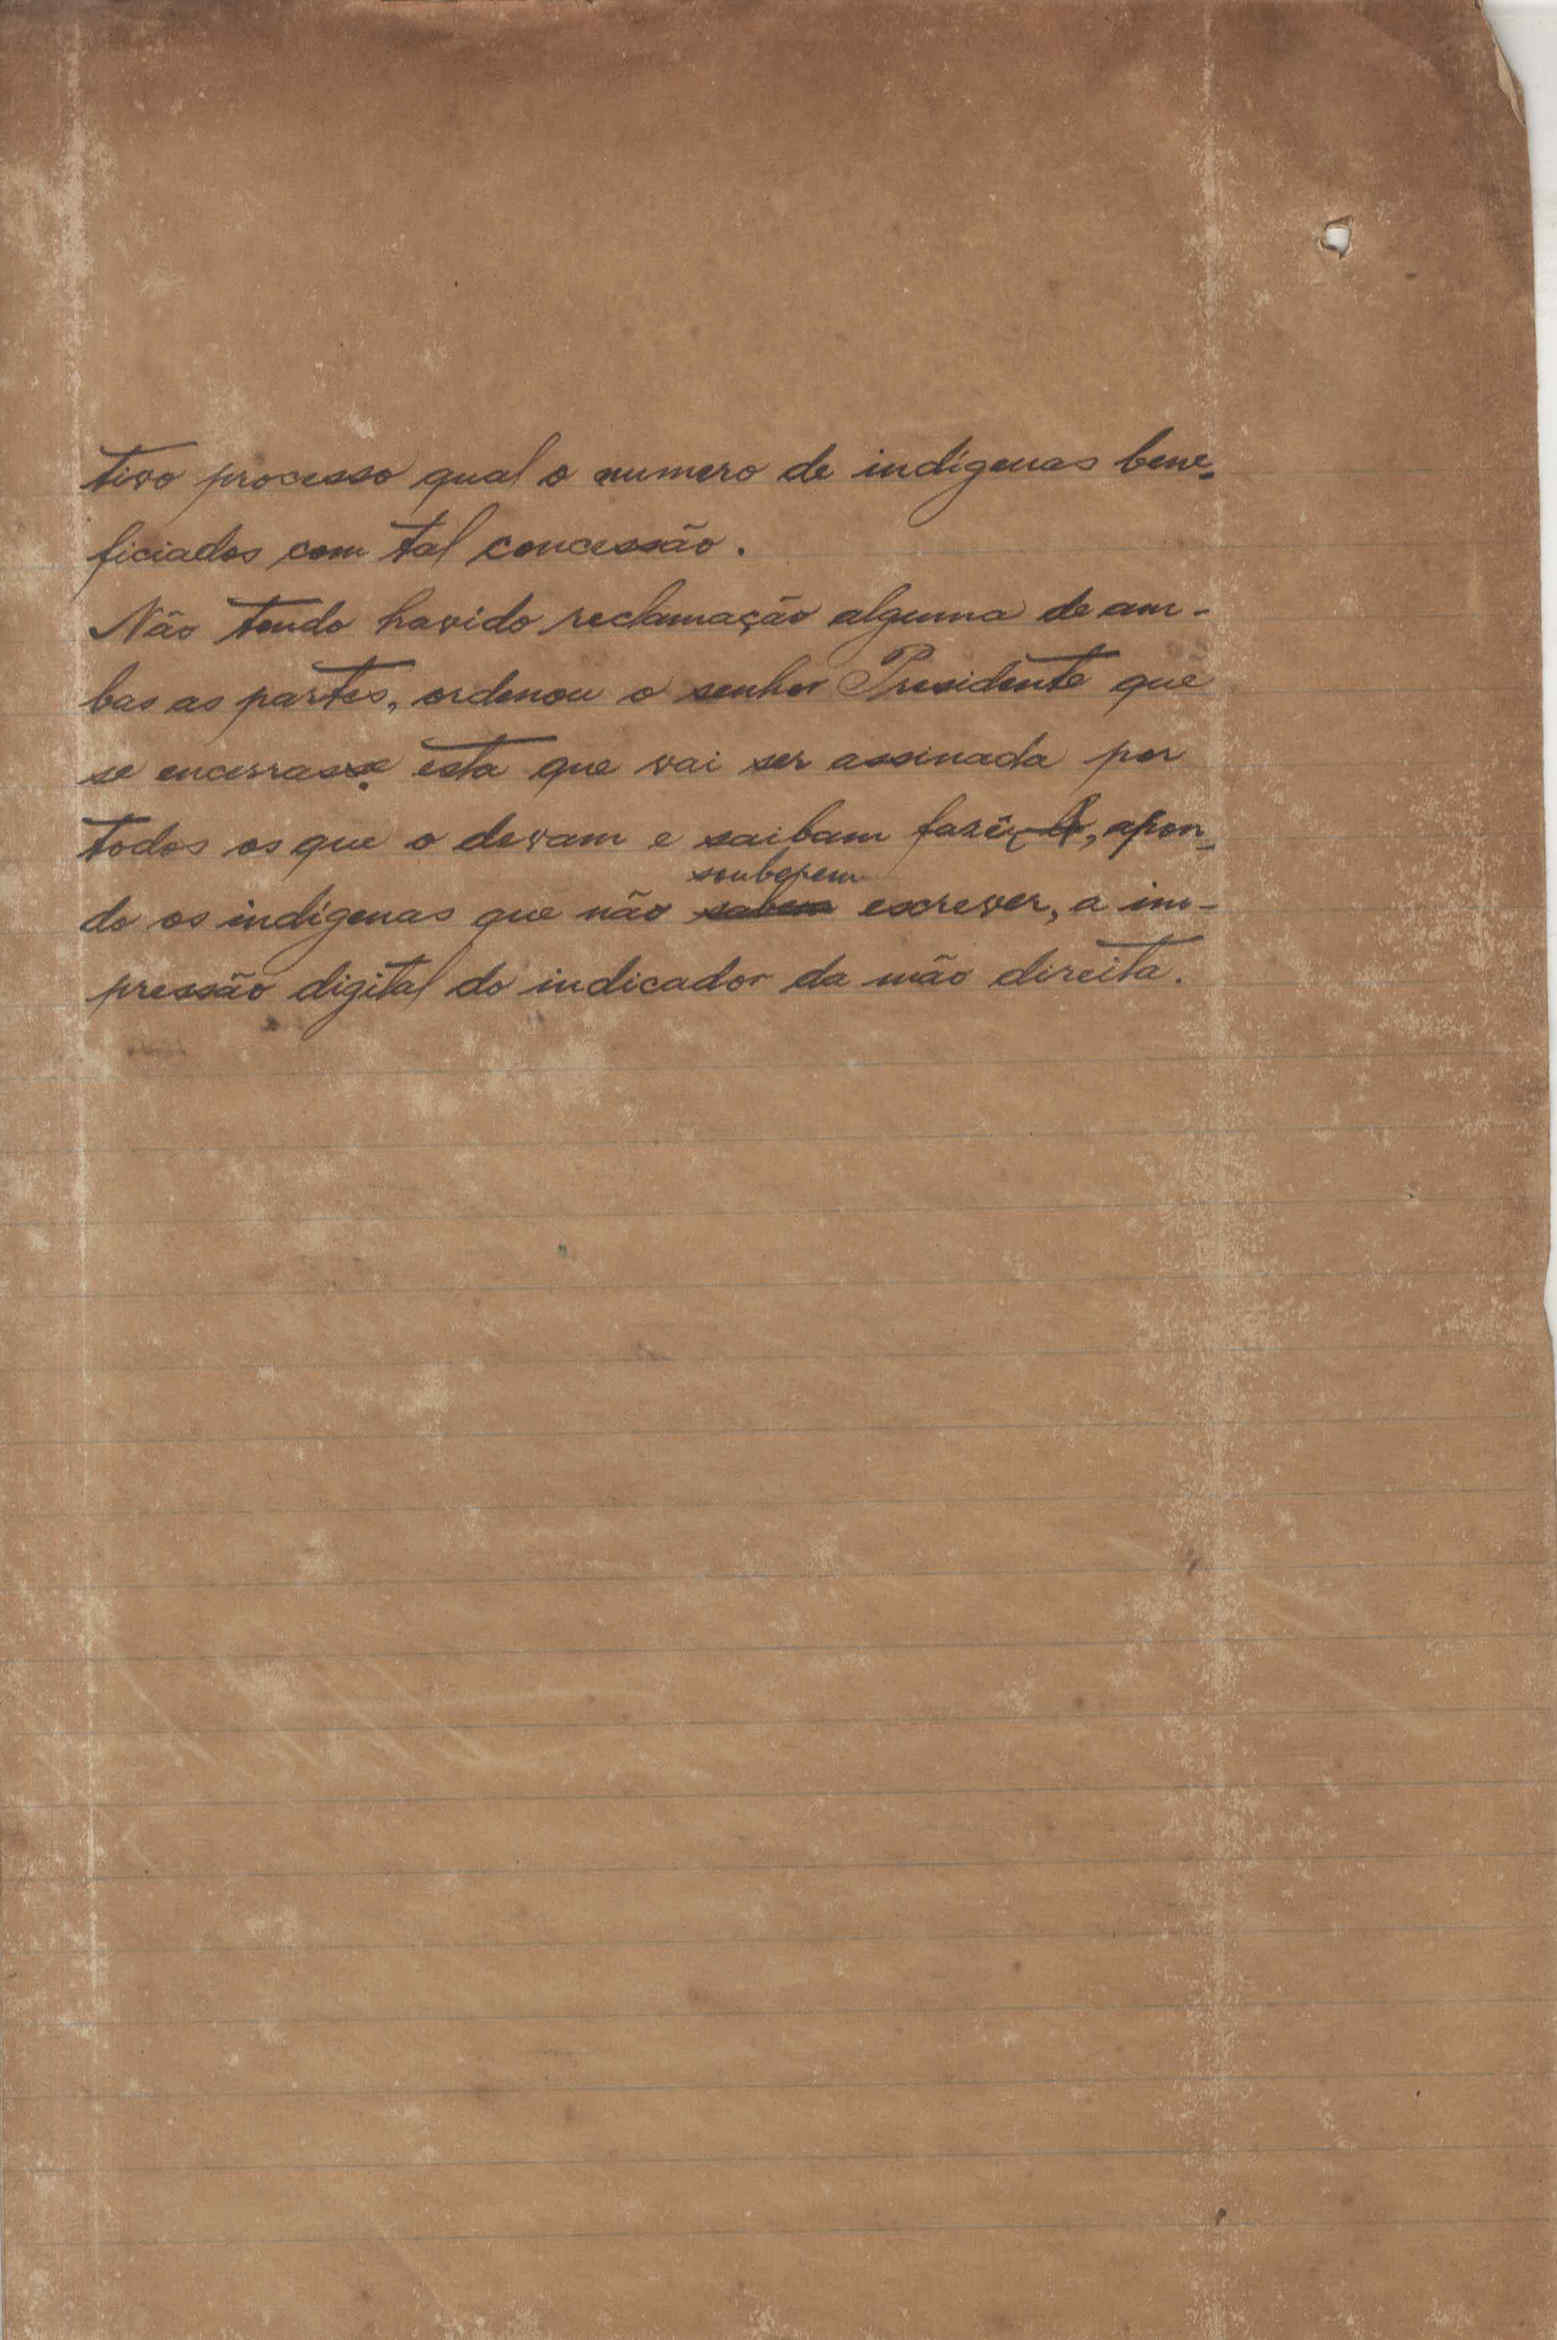 tivo processo qual o numero de indígenas bene-
ficiados com tal concessão.
Não tendo havido reclamação alguma de am-
bas as partes, ordenou o senhor Presidente que
se encerrasse esta que vai ser assinada por
todos os que o devam e saibam fazê-lo, apon-
do os indígenas que não souberem escrever, a im-
pressão digital do indicador da mão direita.